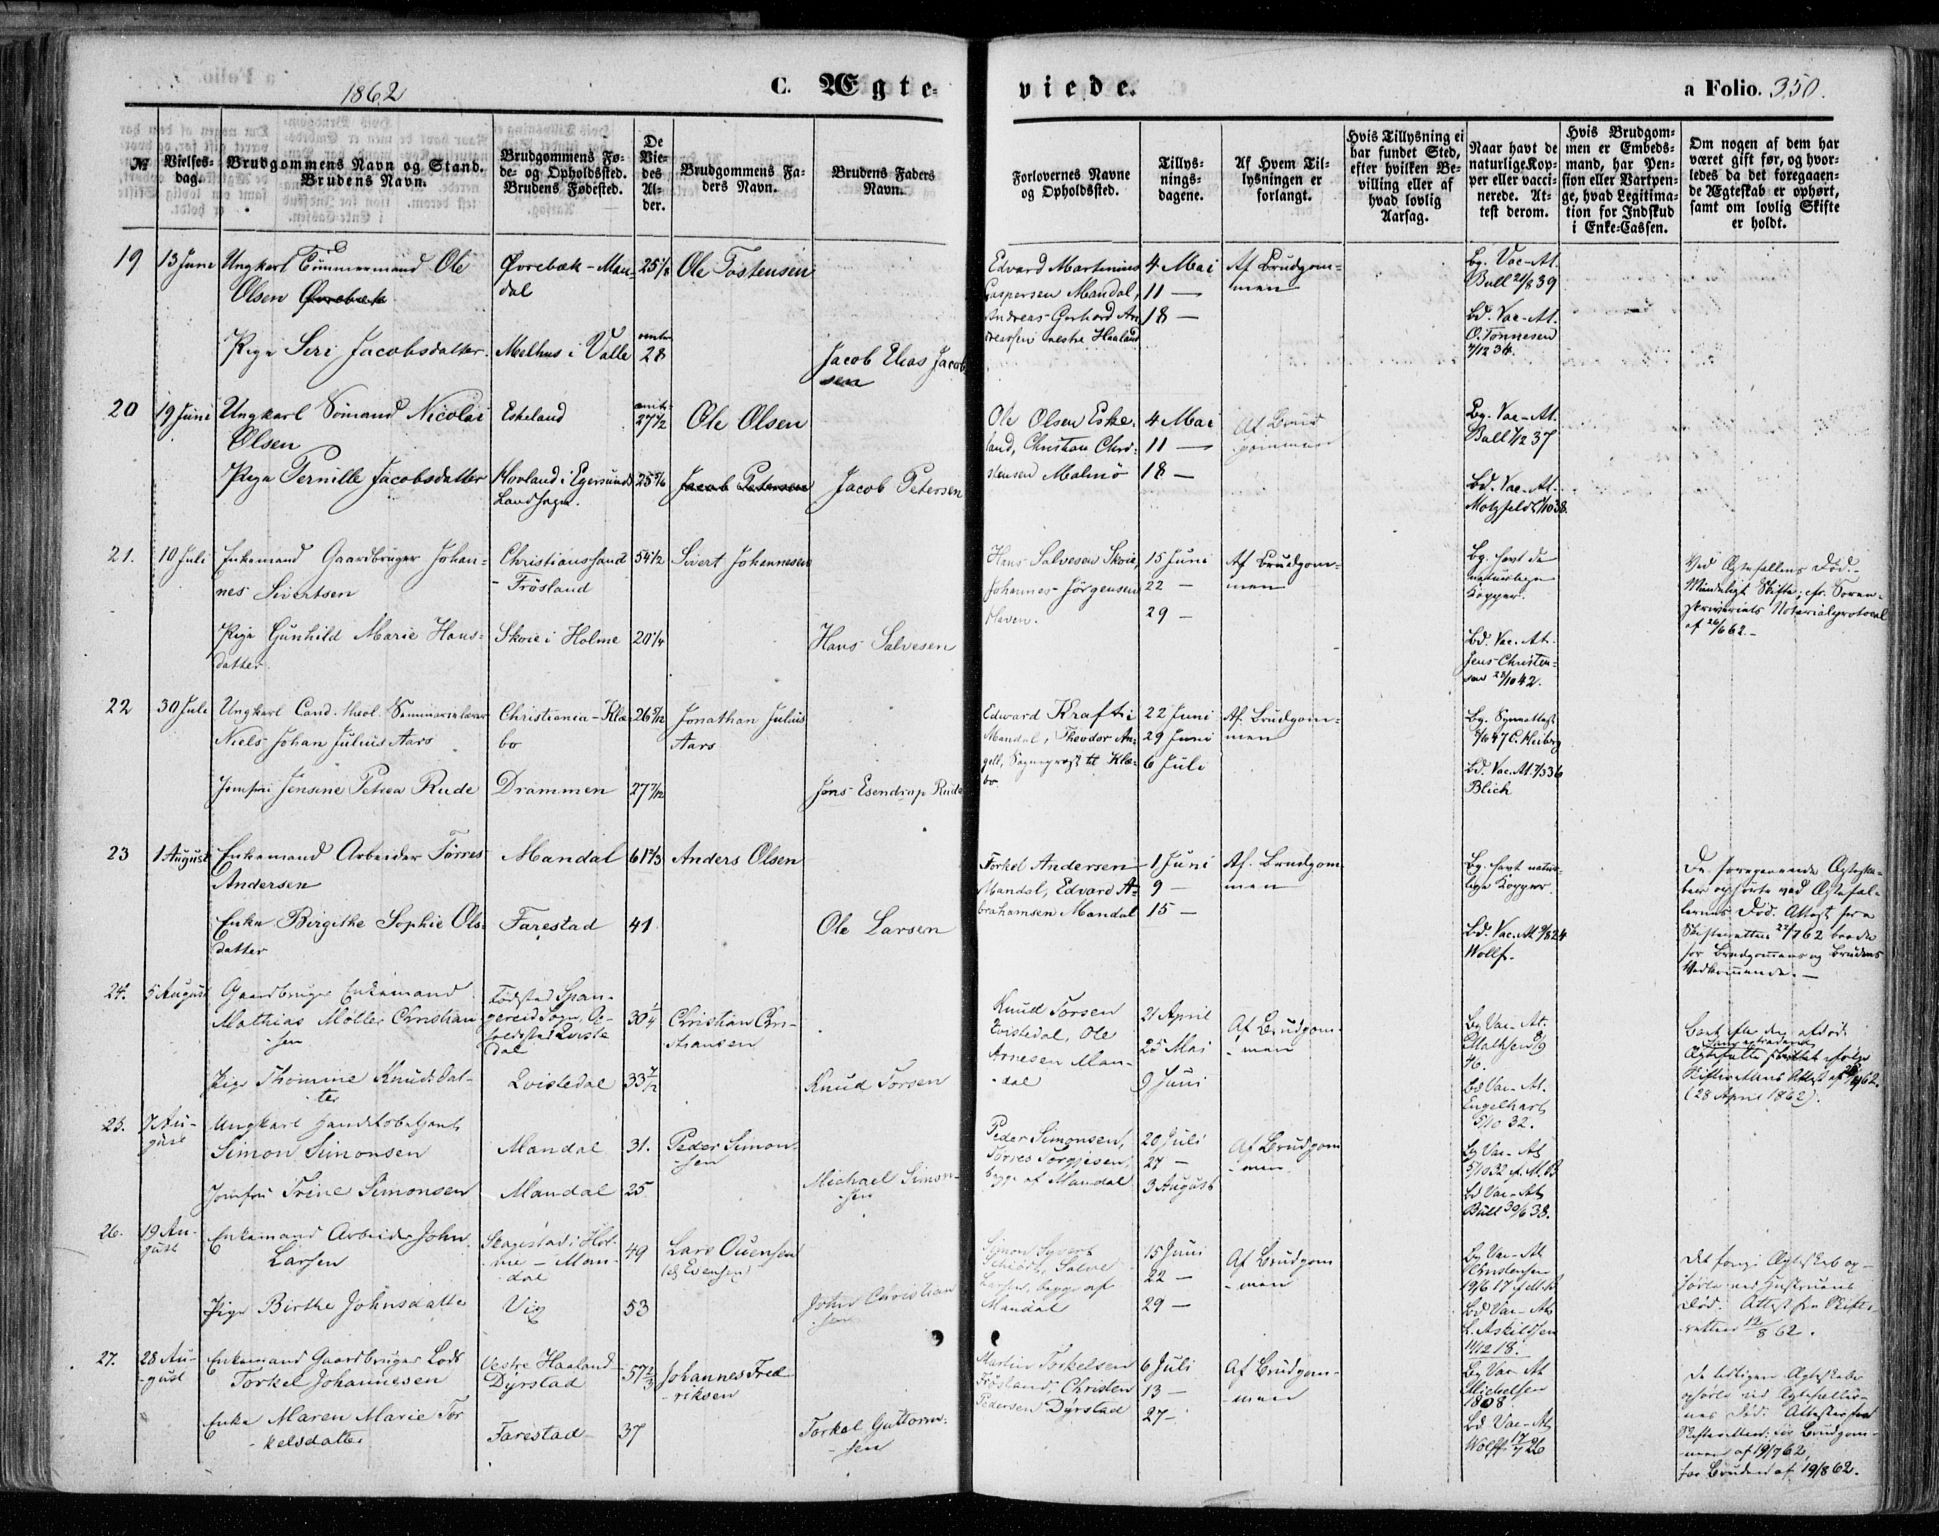 1862
C. Ægteviede.
a Folio. 350.
№
Vielsesdag.
Brudgommens Navn og Stand. Brudens Navn.
Brudgommens Føde- og Opholdssted. Brudens Fødested.
De Viedes Alder.
Brudgommens Faders Navn.
Brudens Faders Navn.
Forlovernes Navne og Opholdssted.
Tillysningsdagene.
Af Hvem Tillysningen er forlangt.
Hvis Tillysning ei har fundet Sted, efter hvilken Bevilling eller af hvad lovlig Aarsag.
Naar havt de naturlige Kopper eller vaccinerede. Attest derom.
Hvis Brudgommen er Embedsmand, har Pension eller Vartpenge, hvad Legitimation for Indskud i Enke-Cassen.
Om nogen af dem har været gift før, og hvorledes da det foregaaende Ægteskab er ophørt, samt om lovlig Skifte er holdt.
19 13 June Ungkarl Tømmermand Ole Olsen Øvrebæk
Øvrebæk - Mandal
25 1/8
Ole Tostensen
Edvard Martinius Caspersen Mandal, Andreas Gerhard Andreassen vestre Haaland
4 Mai
11 —
18 —
Af Brudgommen
Bg. Vac-At. Bull 21/8 39
Pige Seri Jacobsdatter
Melhus i Valle
28
Jacob Elias Jacobsen
Bd. Vac-At. O. Tønnesen
20 19 Juni Ungkarl Sømand Nicolai Olsen
Eskeland
27 1/2
Ole Olsen
Ole Olsen Eskeland, Christian Christensen Malmø
4 Mai
11 —
18 —
Af Brudgommen
Bg. Vac-At. Bull
Pige Pernille Jacobsdatter
Hovland i Egersunds Landsogn
25 5/6
Jacob Petersen
Jacob Petersen
Bd. Vac-At. Motzfeldt
21. 10 Juli Enkemand Gaardbruger Johannes Sivertsen
Christianssand - Frøsland
54 1/2
Sivert Johannesen
Hans Salvesen Skoie, Johannes Jørgensen Haven.
15 Juni
22 —
29 —
Af Brudgommen
Bg. havt de naturlige Kopper.
Ved Ægtefællens Død. Mindeligt Skifte, cfr. Sorenskriveriets Notarialprotocol af 26/6 62 —
Pige Gunhild Marie Hansdatter
Skoie i Holme
20 1/4
Hans Salvesen
Bd. Vac. At. Jens Christensen 23/10 42.
22 30 Juli Ungkarl Cand. theol. Seminarielærer Niels Johan Julius Aars
Christiania - Klæbo
26 5/12
Jonathan Julius Aars
Edward Kraft i Mandal, Theodor Angell, Sognepræst til Klæbo
22 Juni
29 Juni
6 Juli
Af Brudgommen
Jomfru Jensine Petrea Rude
Drammen
27 7/12
Jens Esendrup Rude
Bd. Vac. At. 7/5 36 Blich
23 1 August Enkemand Arbeider Tørres Andersen
Mandal
61 2/3
Anders Olsen
Torkel Andersen Mandal, Edvard Abrahamsen Mandal
1 Juni
9 —
15 —
Af. Brudgommen
Bg. havt naturlige Kopper.
De foregaaende Ægteskaber ophørte ved Ægtefællernes Død. Attest fra Skifteretten 22/7 62 baade for Brudgommens og Brudens Vedkommende. —
Enke Birgithe Sophie Olsdatter
Farestad
41
Ole Larsen
Bd. Vac. At. 9/8 24 Wolff.
24. 5 August Gaardbruger Enkemand Mathias Møller Christiansen
Fødsted Spangereid Sogn, Opholdssted Qvistedal
30 1/4
Christian Christiansen
Knud Torsen Qvistedal, Ole Arnesen Mandal
21 April
25 Mai
9 Juni
Af Brudgommen
Pige Thomine Knudsdatter
Qvistedal
33
Knud Torsen
Bd Vac-At. Engelhart 5/10 32.
(28 April 1862).
25. 7 August Ungkarl Handelsbetjent Simon Simonsen
Mandal
31.
Peder Simonsen
Peder Simonsen, Tørres Torgjesen, begge af Mandal
20 Juli
27 —
3 August
Af Brudgommen
Bg Vac-At 5/10 32
Jomfru Trine Simonsen
Mandal
25
Michael Simonsen
Bd Vac-At Bull 30/6 38.
26. 19 August Enkemand Arbeider John Larsen
Skagestad i Holme - Mandal
49
Lars Ouensen (el. Evensen)
Simon Syvert Schiødt, Salve Larsen, begge af Mandal
15 Juni
22 —
29 —
Af Brudgommen
Bg Vac-At Christensen 19/6 17
Det forrige Ægteskab ophørte ved Hustruens Død. Attest fra Skifteretten 12/8 62.
Pige Birthe Johnsdatter
Vig
53
John Christiansen
Bd Vac-At L. Askildsen
27. 28 August Enkemand Gaardbruger Lods Torkel Johannesen
Vestre Haaland - Dyrstad
57 2/3
Johannes Fredriksen
Martin Torkelsen Frøsland, Christen Pedersen Dyrstad
6 Juli
13 —
27 —
Af Brudgommen
Bg Vac-At Michelsen 1808
De tidligere Ægteskaber ophørte ved Ægtefællernes Død. Attester fra Skifteretten: for Brudgommen af 19/7 62, for Bruden af 19/8 62.
Enke Maren Marie Torkelsdatter
Farestad
37
Torkel Guttormsen
Bd Vac-At Wolff 17/7 26